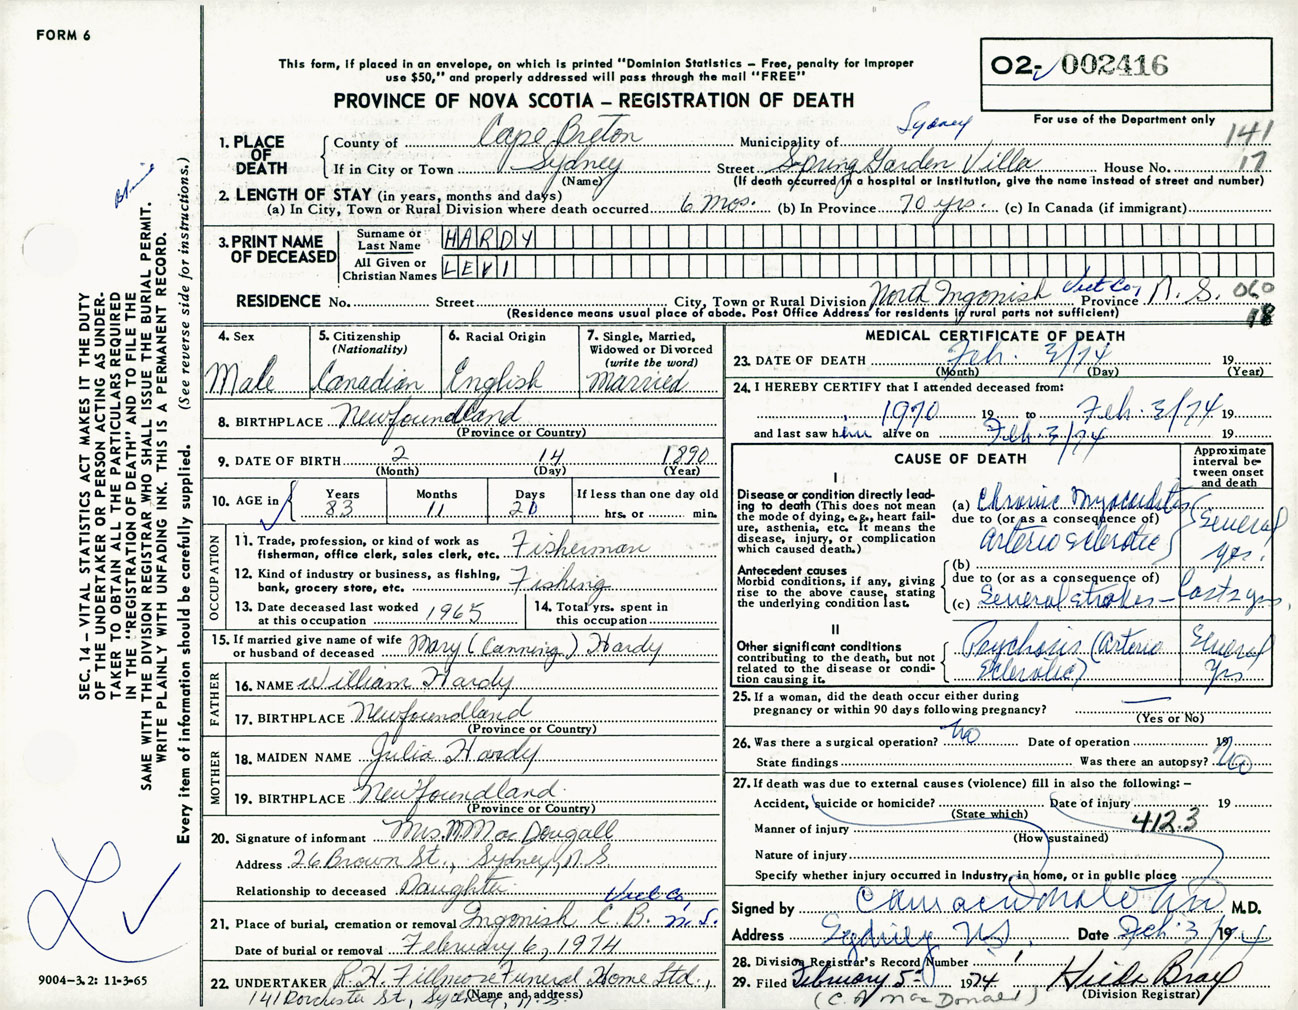 FORM 6
This form, if placed in an envelope, on which is printed "Dominion Statistics – Free, penalty for improper
use $50," and properly addressed will pass through the mail "FREE"
PROVINCE OF NOVA SCOTIA – REGISTRATION OF DEATH
02- 002416
For use of the Department only
141
17
1. PLACE OF DEATH
County of Cape Breton Municipality of Sydney
If in City or Town Sydney Street Spring Garden Villa House No.
(Name) (If death occurred in a hospital or institution, give the name instead of street and number)
2. LENGTH OF STAY (in years, months and days)
(a) In City, Town or Rural Division where death occurred 6 mos. (b) In Province 70 yrs. (c) In Canada (if immigrant)
3. PRINT NAME OF DECEASED
Surname or Last Name HARDY
All Given or Christian Names LEVI
RESIDENCE No. Street City, Town or Rural Division North Ingonish Vict Co, Province N. S. 060
(Residence means usual place of abode. Post Office Address for residents in rural parts not sufficient) 18
4. Sex Male
5. Citizenship (Nationality) Canadian
6. Racial Origin English
7. Single, Married, Widowed or Divorced (write the word) Married
8. BIRTHPLACE Newfoundland
(Province or Country)
9. DATE OF BIRTH 2 14 1890
(Month) (Day) (Year)
10. AGE in Years 83 Months 11 Days 20 If less than one day old hrs. or min.
OCCUPATION
11. Trade, profession, or kind of work as fisherman, office clerk, sales clerk, etc. Fisherman
12. Kind of industry or business, as fishing, bank, grocery store, etc. Fishing
13. Date deceased last worked at this occupation 1965
14. Total yrs. spent in this occupation
15. If married give name of wife or husband of deceased Mary (Canning) Hardy
FATHER
16. NAME William Hardy
17. BIRTHPLACE Newfoundland
(Province or Country)
MOTHER
18. MAIDEN NAME Julia Hardy
19. BIRTHPLACE Newfoundland
(Province or Country)
20. Signature of informant Mrs. M MacDougall
Address 26 Brown St., Sydney, N.S.
Relationship to deceased Daughter
Vict Co,
21. Place of burial, cremation or removal Ingonish C. B. N. S.
Date of burial or removal February 6, 1974
22. UNDERTAKER R. H. Fillmore Funeral Home Ltd.,
141 Dorchester St, Sydney, N.S.
(Name and address)
MEDICAL CERTIFICATE OF DEATH
23. DATE OF DEATH Feb. 3/74 19
(Month) (Day) (Year)
24. I HEREBY CERTIFY that I attended deceased from:
1970 19 to Feb. 3/74 19
and last saw him alive on Feb. 3/74 19
CAUSE OF DEATH
Approximate interval between onset and death
I
Disease or condition directly leading to death (This does not mean the mode of dying, e.g., heart failure, asthenia, etc. It means the disease, injury, or complication which caused death.)
(a) Chronic Myocarditis
due to (or as a consequence of)
Arteriosclerotic
Several yrs.
Antecedent causes
Morbid conditions, if any, giving rise to the above cause, stating the underlying condition last.
(b)
due to (or as a consequence of)
(c) Several strokes – Last 3 yrs.
II
Other significant conditions contributing to the death, but not related to the disease or condition causing it.
Psychosis (Arterio Sclerotic) Several yrs
25. If a woman, did the death occur either during pregnancy or within 90 days following pregnancy? —
(Yes or No)
26. Was there a surgical operation? No Date of operation 19
State findings Was there an autopsy? No
27. If death was due to external causes (violence) fill in also the following: –
Accident, suicide or homicide? Date of injury 19
(State which)
412.3
Manner of injury
(How sustained)
Nature of injury
Specify whether injury occurred in industry, in home, or in public place
Signed by M.D.
Address Sydney NS. Date Feb. 3/ 1974
28. Division Registrar's Record Number 1
29. Filed February 5 1974 Hilda Bray
(C. A MacDonald) (Division Registrar)
SEC. 14 – VITAL STATISTICS ACT MAKES IT THE DUTY
OF THE UNDERTAKER OR PERSON ACTING AS UNDER-
TAKER TO OBTAIN ALL THE PARTICULARS REQUIRED
IN THE "REGISTRATION OF DEATH" AND TO FILE THE
SAME WITH THE DIVISION REGISTRAR WHO SHALL ISSUE THE BURIAL PERMIT.
WRITE PLAINLY WITH UNFADING INK. THIS IS A PERMANENT RECORD.
Every item of information should be carefully supplied. (See reverse side for instructions.)
9004-3.2: 11-3-65